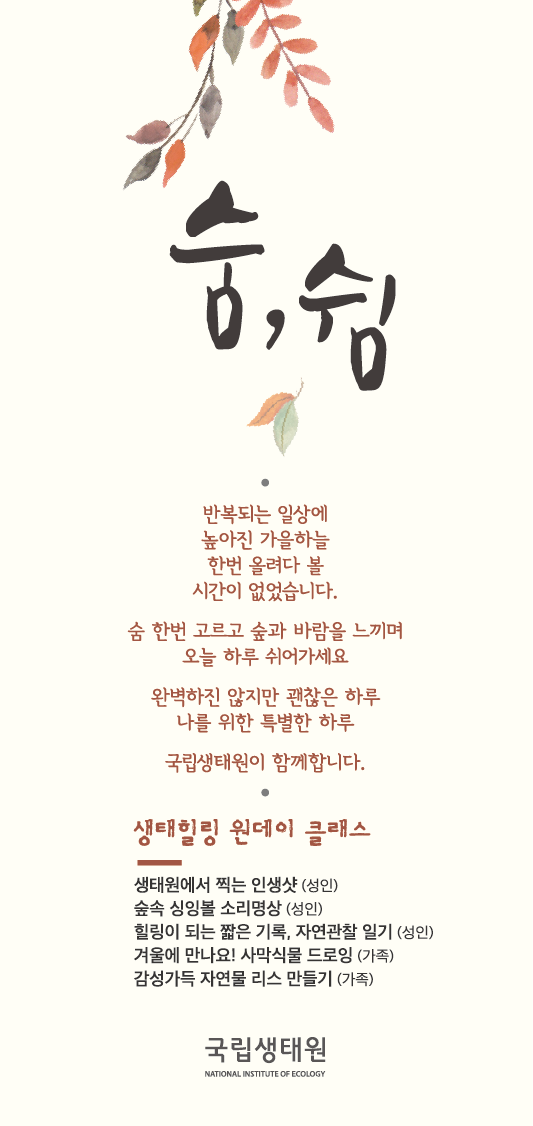 숨, 쉼
반복되는 일상에
높아진 가을하늘
한번 올려다 볼
시간이 없었습니다.
숨 한번 고르고 숲과 바람을 느끼며
오늘 하루 쉬어가세요
완벽하진 않지만 괜찮은 하루
나를 위한 특별한 하루
국립생태원이 함께합니다.
생태힐링 원데이 클래스
생태원에서 찍는 인생샷 (성인)
숲속 싱잉볼 소리명상 (성인)
힐링이 되는 짧은 기록, 자연관찰 일기 (성인)
겨울에 만나요! 사막식물 드로잉 (가족)
감성가득 자연물 리스 만들기 (가족)
국립생태원
NATIONAL INSTITUTE OF ECOLOGY